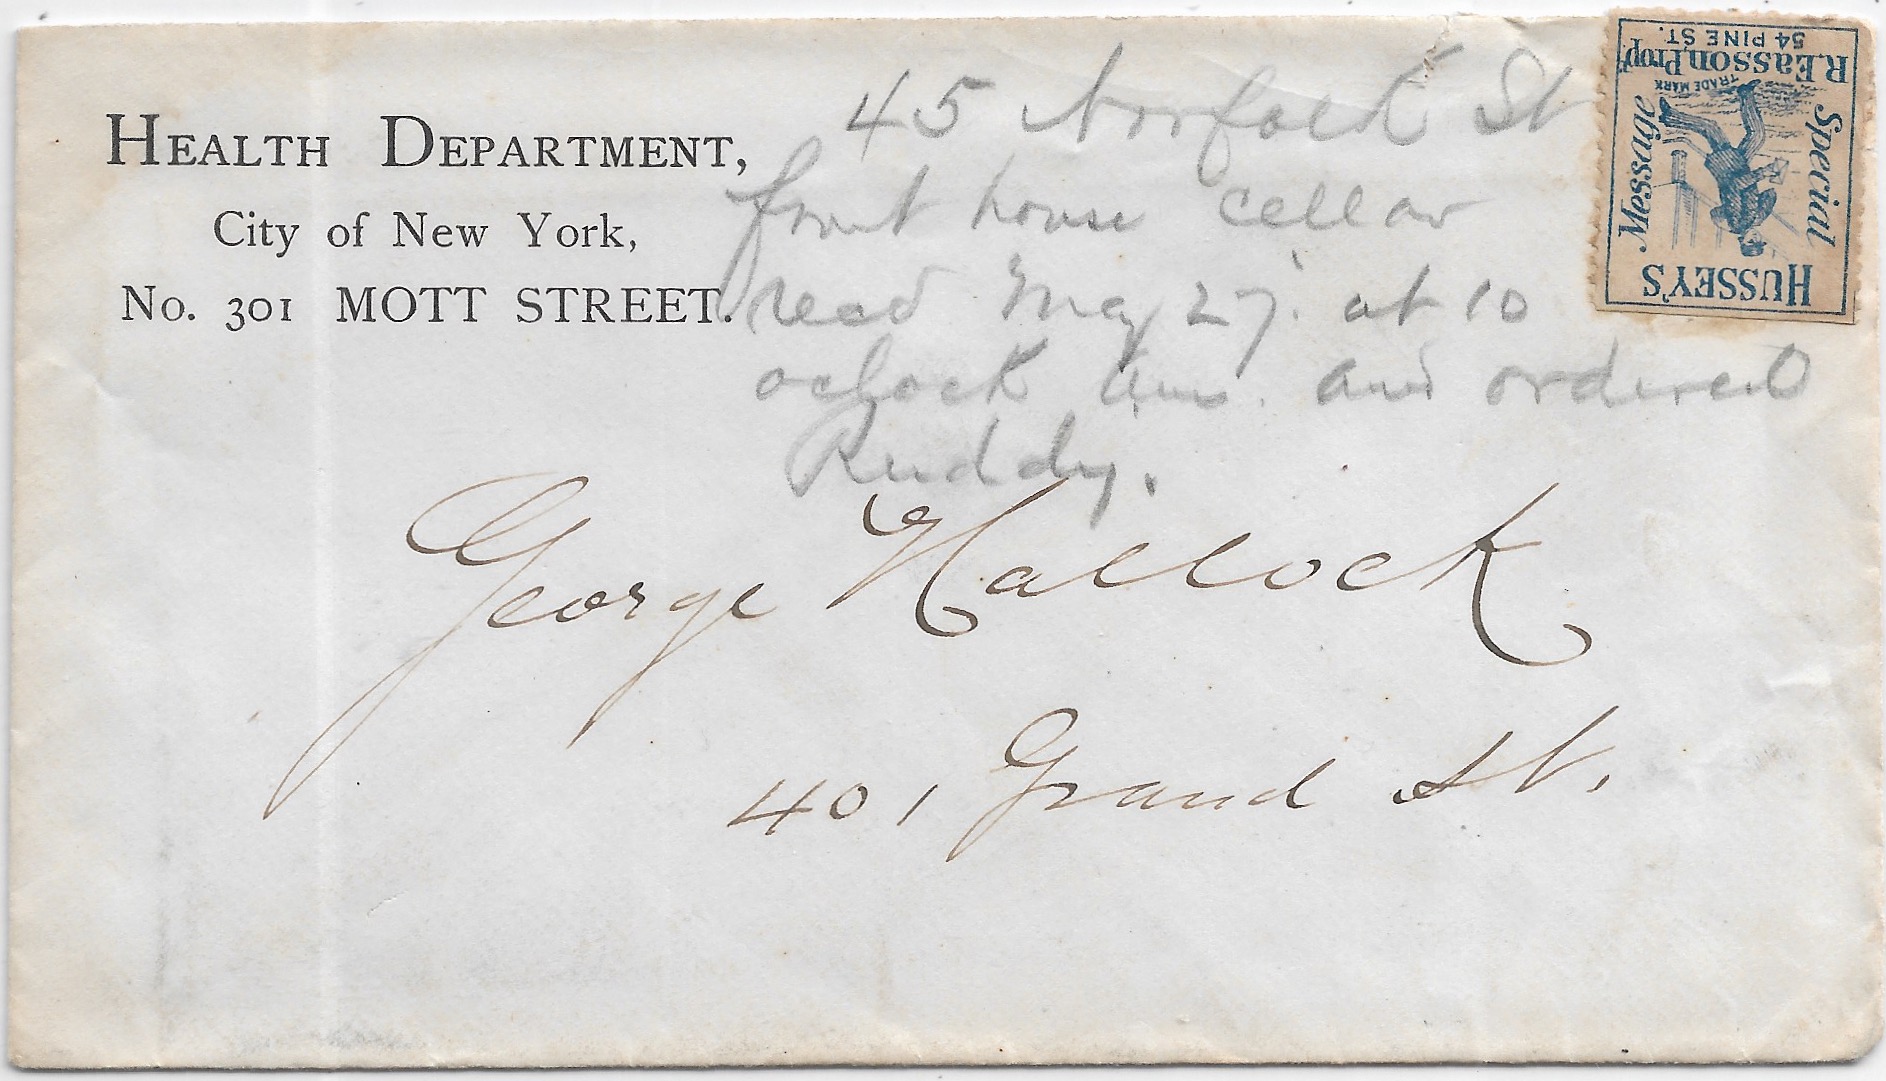 HEALTH DEPARTMENT,
City of New York,
No. 301 MOTT STREET.
45 Norfolk St
front house cellar
read May 27. at 10
oclock am. and ordered
Ruddy.
HUSSEY'S
Special Message
TRADE MARK
R.Easson, Prop.
54 PINE ST.
George Hallock
401 Grand St.